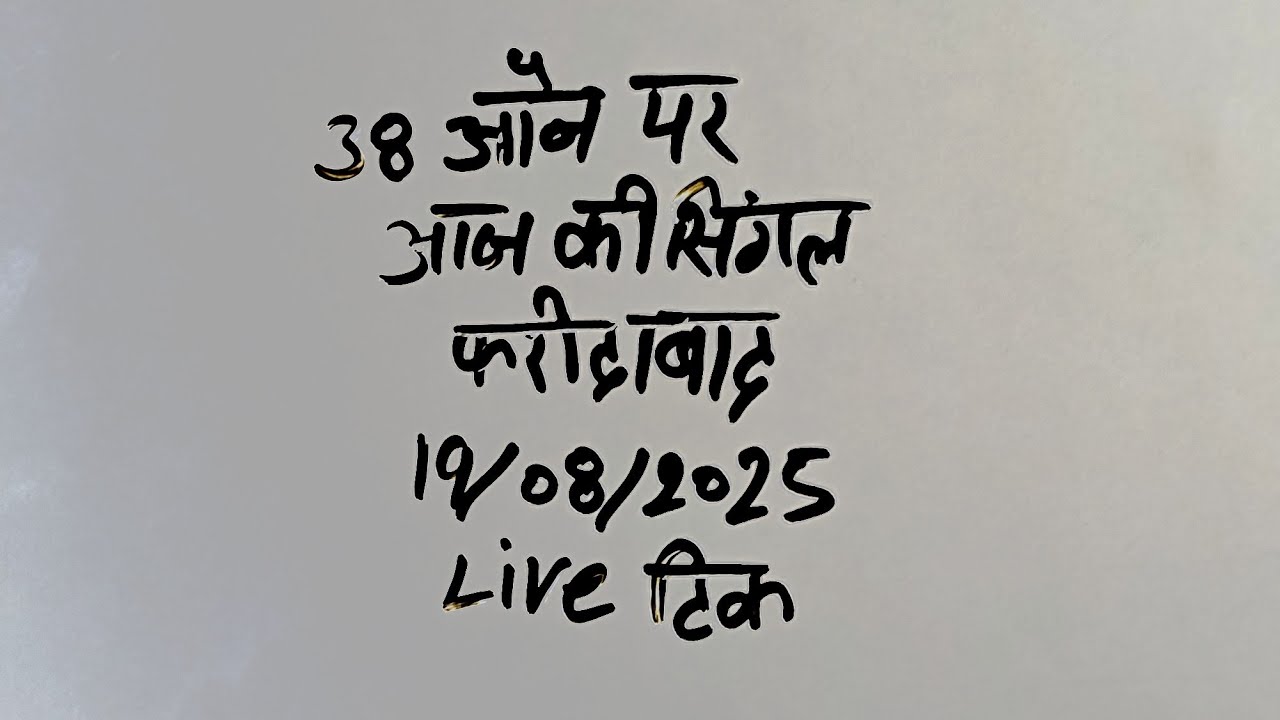 38 ऑन पर
आज की सिंगल
फरीदाबाद
19/08/2025
Live टिक